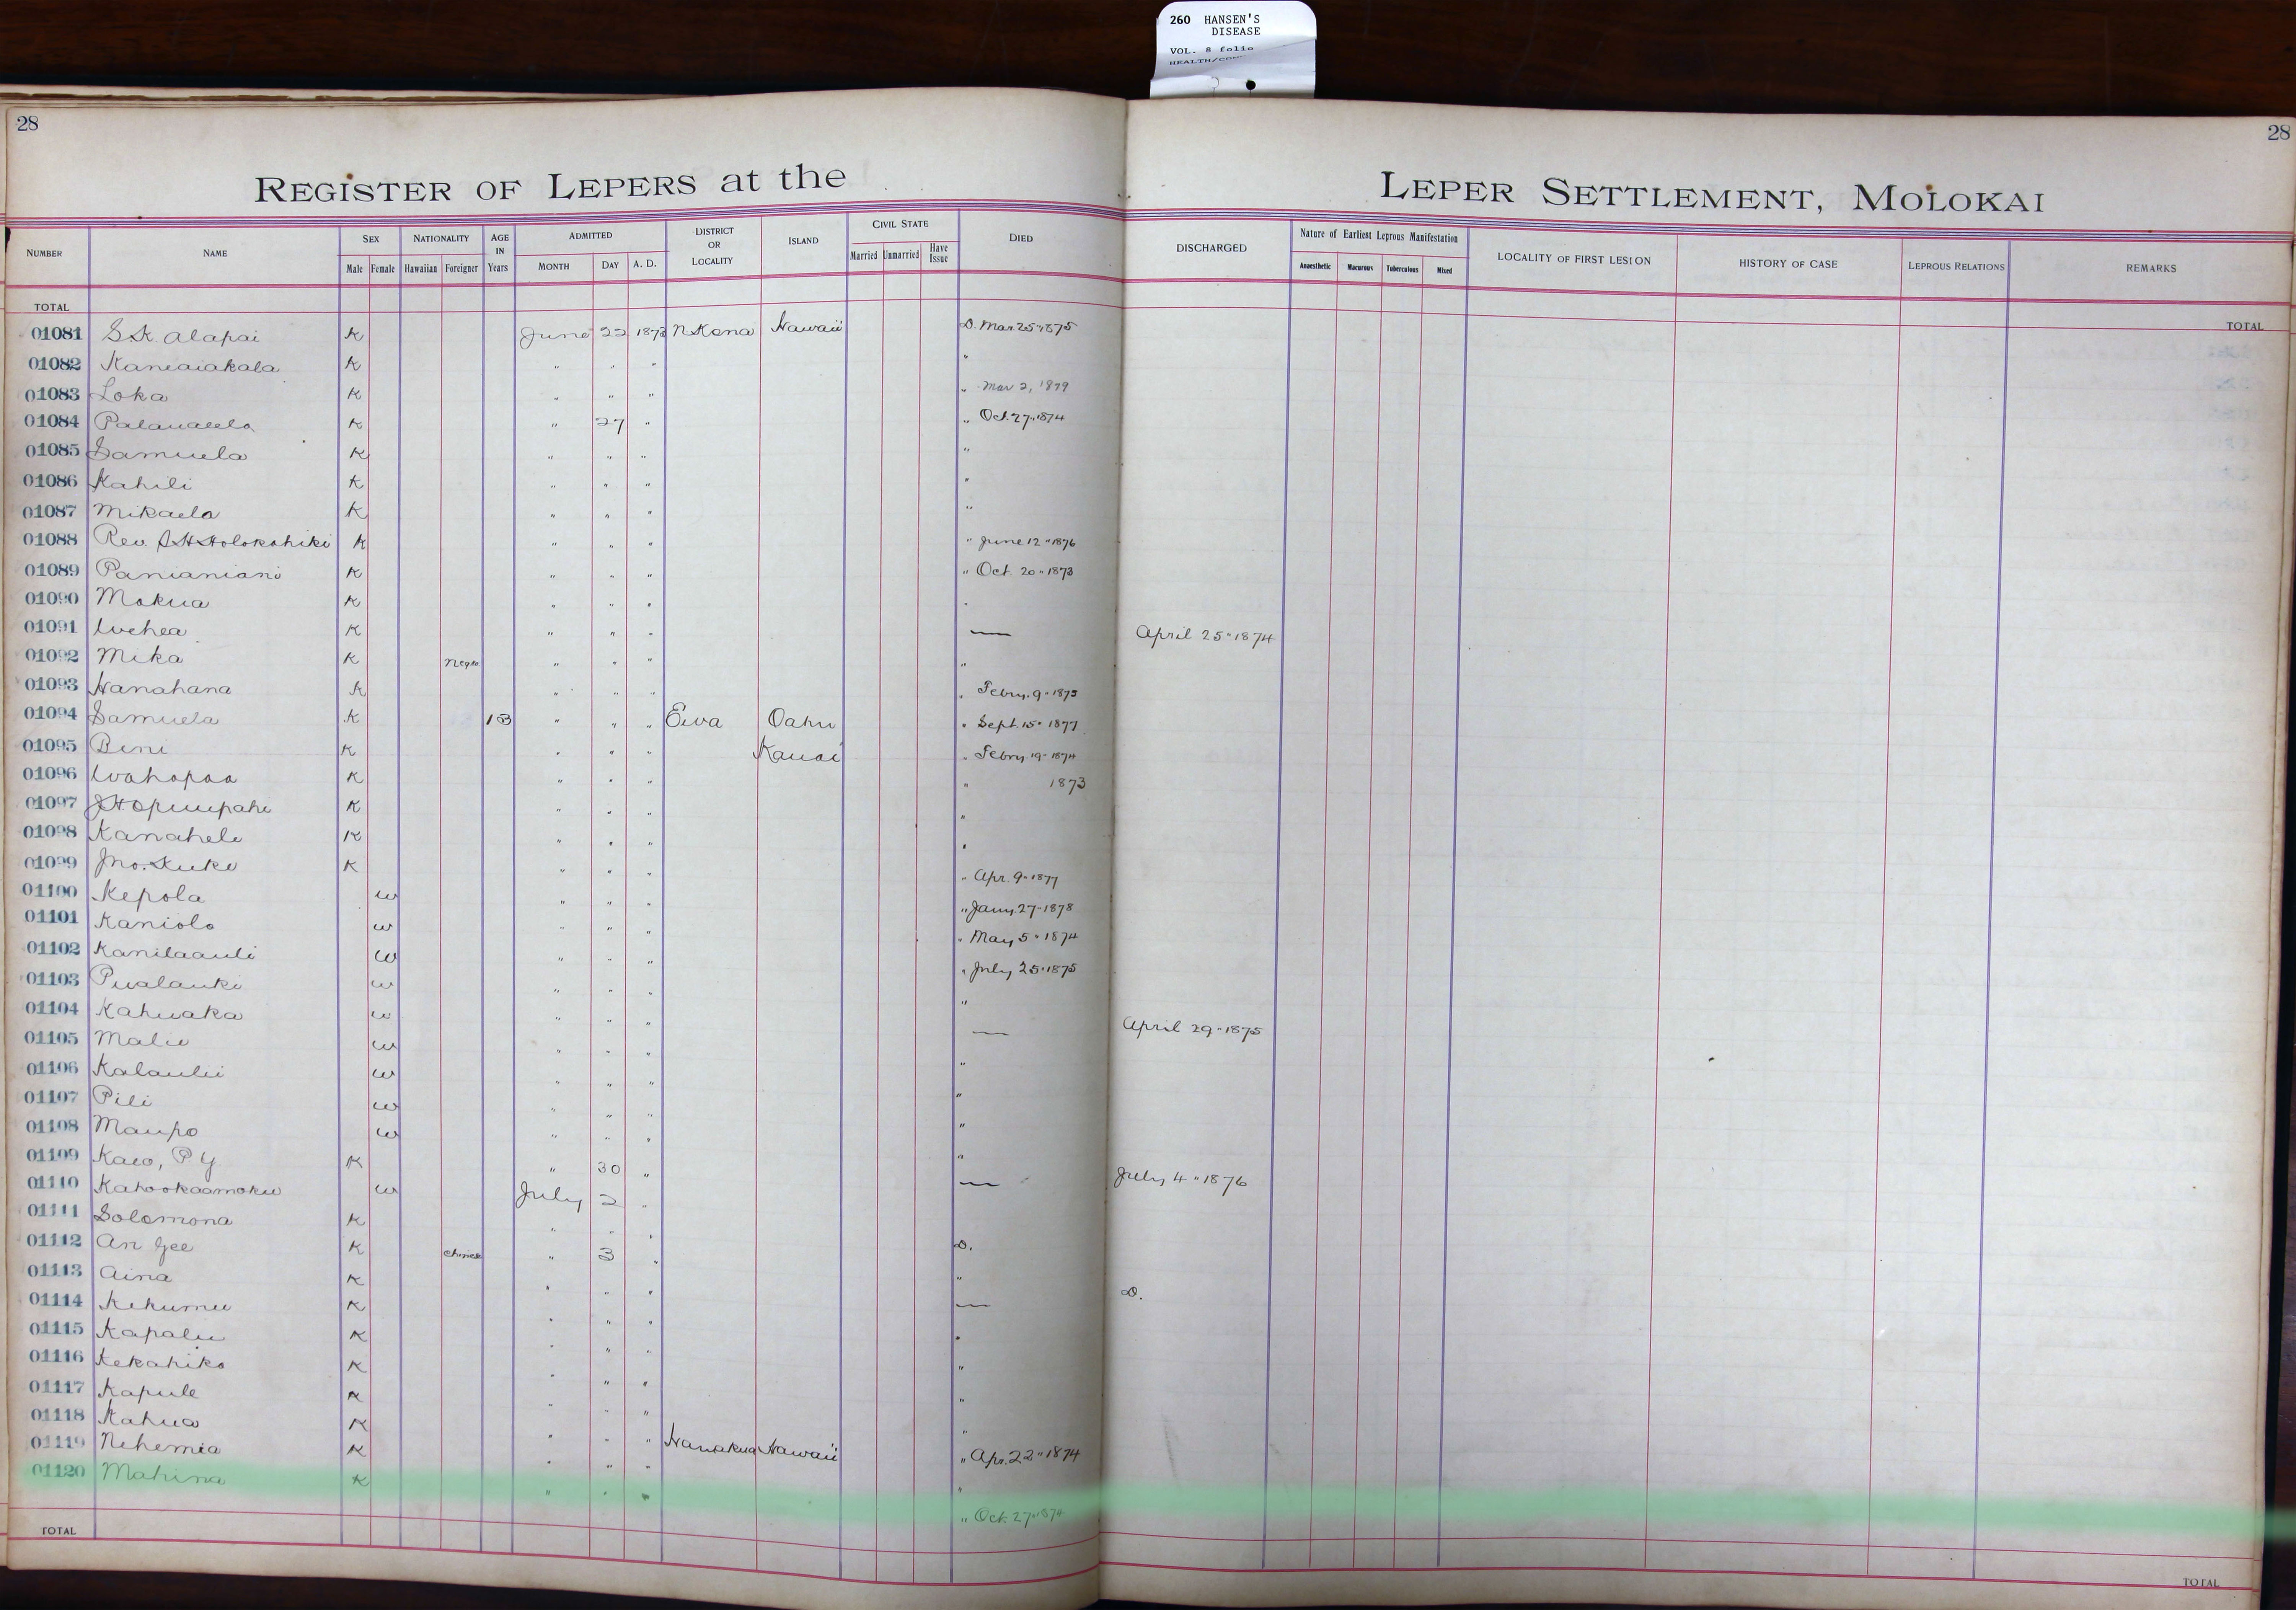 260 HANSEN'S
DISEASE
VOL. 8 folio
28
28
REGISTER OF LEPERS at the LEPER SETTLEMENT, MOLOKAI
NUMBER NAME SEX Male Female NATIONALITY Hawaiian Foreigner AGE IN Years ADMITTED MONTH DAY A. D. DISTRICT OR LOCALITY ISLAND CIVIL STATE Married Unmarried Have Issue DIED DISCHARGED Nature of Earliest Leprous Manifestation Anaesthetic Macurous Tuberculous Mixed LOCALITY OF FIRST LESION HISTORY OF CASE LEPROUS RELATIONS REMARKS
TOTAL TOTAL
01081 S.K. Alapai K June 22 1873 N Kona Hawaii D. Mar. 25 " 1875
01082 Kaneaiakala K " " " "
01083 Loka K " " " " Mar 2, 1879
01084 K " 27 " " Oct. 27 " 1874
01085 Samuela K " " " "
01086 Kahili K " " " "
01087 Mikaela K " " " "
01088 Rev. Holokahiki K " " " " June 12 " 1876
01089 Panianiani K " " " " Oct. 20 " 1873
01090 Mokua K " " " "
01091 Wehea K " " " — April 25 " 1874
01092 Mika K Negro " " " "
01093 Hanahana K " " " " Febry. 9 "
01094 Samuela K 13 " " " Ewa Oahu " Sept. 15 " 1877
01095 Beni K " " " Kauai " Febry 19 " 1874
01096 Wahapaa K " " " " 1873
01097 J.H. Opuupahi K " " " "
01098 Kanahele K " " " "
01099 Jno. Kuke K " " " " Apr. 9 " 1877
01100 Kepola w " " " " Jany. 27 " 1878
01101 Kaniolo w " " " " May 5 " 1874
01102 Kanilaauli w " " " " July 25 " 1875
01103 Pualauki w " " " "
01104 Kahuaka w " " " — April 29 " 1875
01105 Malie w " " " "
01106 Kalaulii w " " " "
01107 Pili w " " " "
01108 Maupo w " " " "
01109 Kaeo, P Y K " 30 " — July 4 " 1876
01110 Kahookaamoku w July 2 "
01111 Solomona K " " " D.
01112 An Gee K Chinese " 3 " "
01113 Aina K " " " — D.
01114 Kekumu K " " " "
01115 Kapalu K " " " "
01116 Kekahiko K " " " "
01117 Kapule K " " " "
01118 Kahua K " " " " Apr. 22 " 1874
01119 Nehemia K " " " Hamakua Hawaii "
01120 Mahina K " " " " Oct. 27 " 1874
TOTAL TOTAL